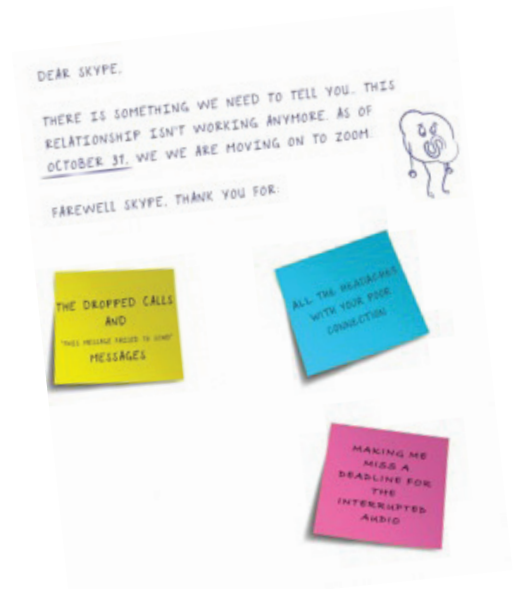 DEAR SKYPE,
THERE IS SOMETHING WE NEED TO TELL YOU.. THIS
RELATIONSHIP ISN'T WORKING ANYMORE. AS OF
OCTOBER 31, WE WE ARE MOVING ON TO ZOOM.
FAREWELL SKYPE, THANK YOU FOR:
THE DROPPED CALLS
AND
"THIS MESSAGE FAILED TO SEND"
MESSAGES
ALL THE HEADACHES
WITH YOUR POOR
CONNECTION
MAKING ME
MISS A
DEADLINE FOR
THE
INTERRUPTED
AUDIO